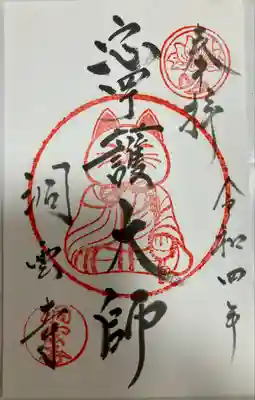 奉拝
令和四年
寧護大師
洞雲